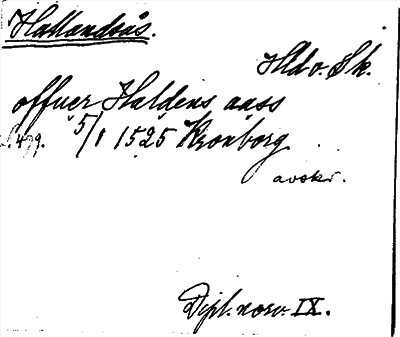 Hallandsås.
Hld o. Sk.
offuer Haldens aass
s. 479. 5/1 1525 Kronborg
avskr.
Dipl. norv. IX.